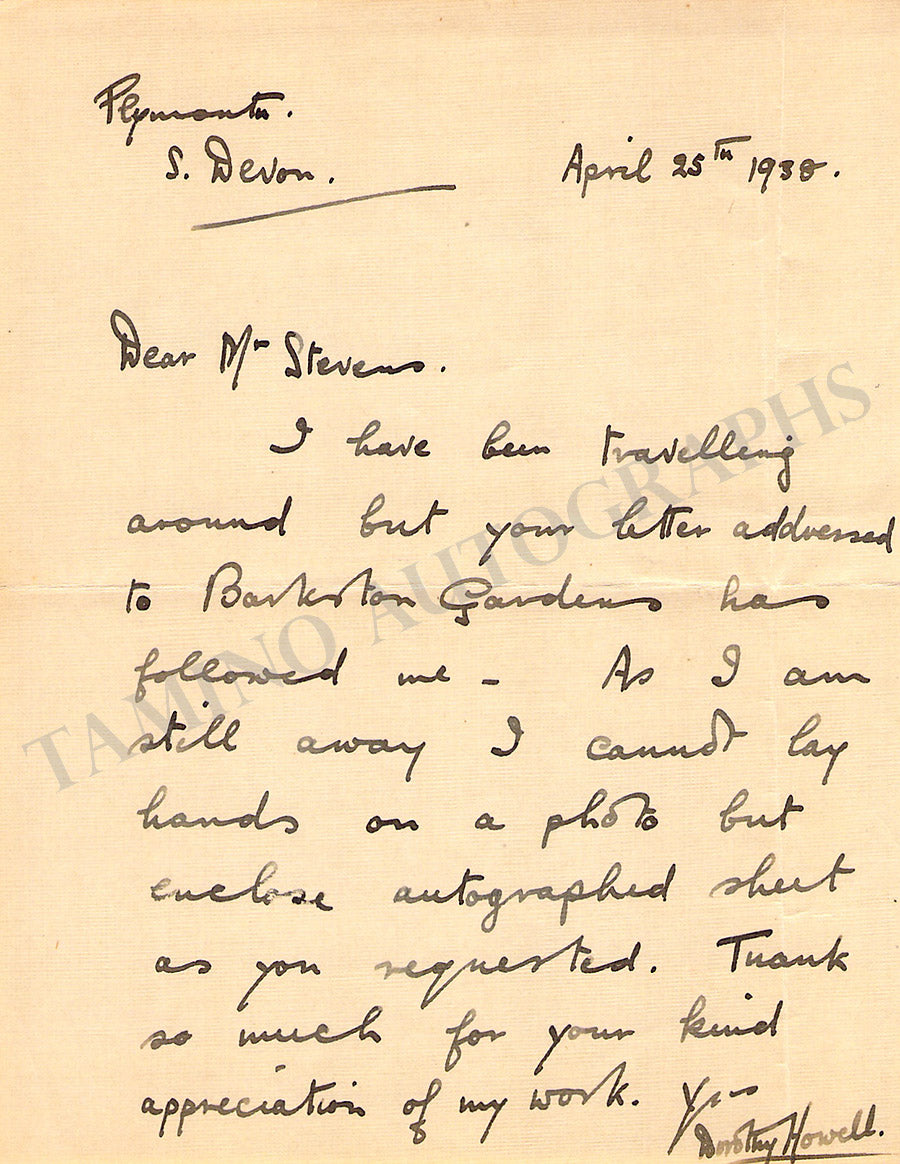 Plymouth.
S. Devon.
April 25th 1938.
Dear Mr Stevens.
I have been travelling
around but your letter addressed
to Barkston Gardens has
followed me - As I am
still away I cannot lay
hands on a photo but
enclose autographed sheet
as you requested. Thank
so much for your kind
appreciation of my work. Yrs
Dorothy Howell.
TAMINO AUTOGRAPHS